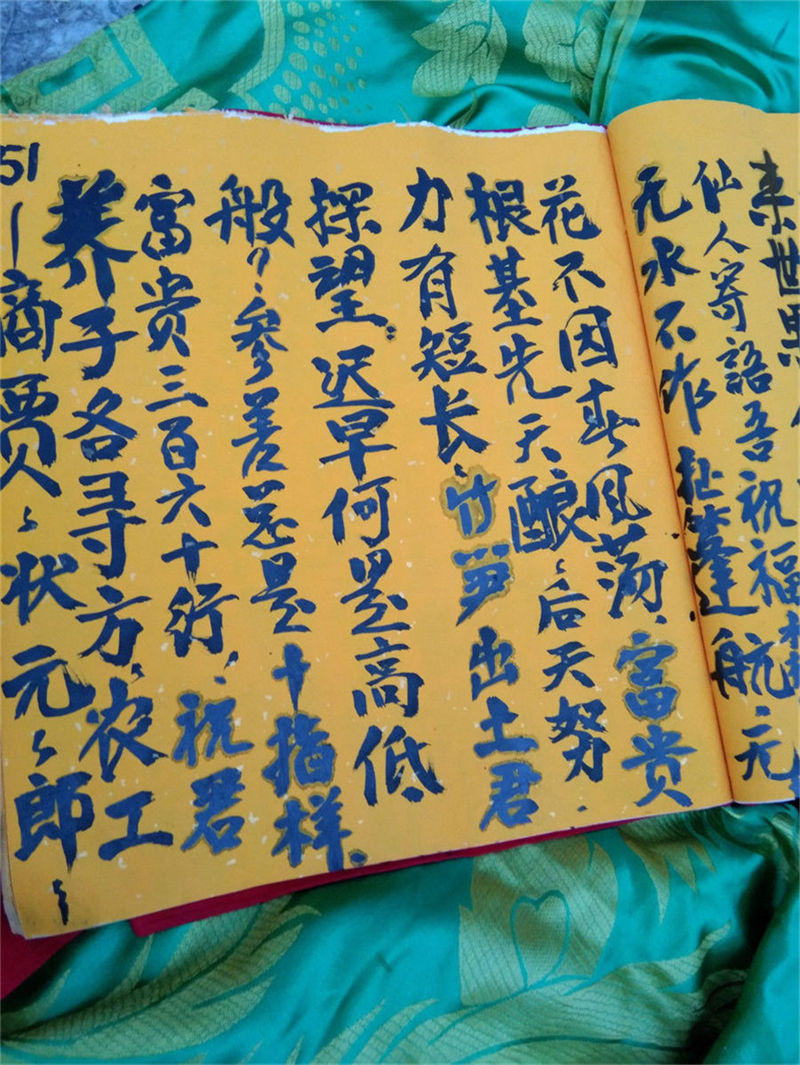 来世
仙人寄語吾祝福
无水不作扯篷航、元
花不因春风荡、富贵
根基先天酿、后天努
力有短长、竹笋出土君
探望、迟早何是高低
般?、参善总是十指样、
富贵三百六十行、祝君
养子各寻方、农工
51
商贾、状元、郎、